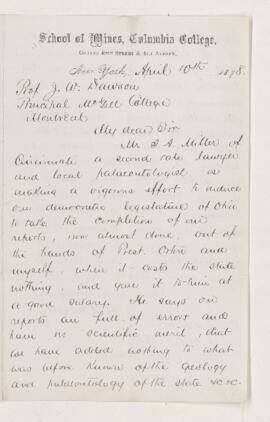 School of Mines, Columbia College,
New York, April 10th 1878.
Prof J. W. Dawson
Principal McGill College
Montreal
My dear Sir
Mr S. A. Miller of
Cincinnati a second rate lawyer
and local palaeontologist is
making a vigorous effort to induce
our democratic legislature of Ohio
to take the completion of our
reports, now almost done, out of
the hands of Prest. Orton and
myself, where it costs the state
nothing, and give it to him at
a good salary. He says our
reports are full of errors and
have no scientific merit, that
we have added nothing to what
was before known of the geology
and palaeontology of the state &c &c.